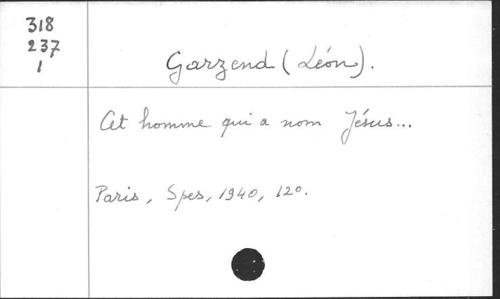 318
237
1
Garzend (Léon).
Cet homme qui a nom Jésus...
Paris, Spes, 1940, 12o.